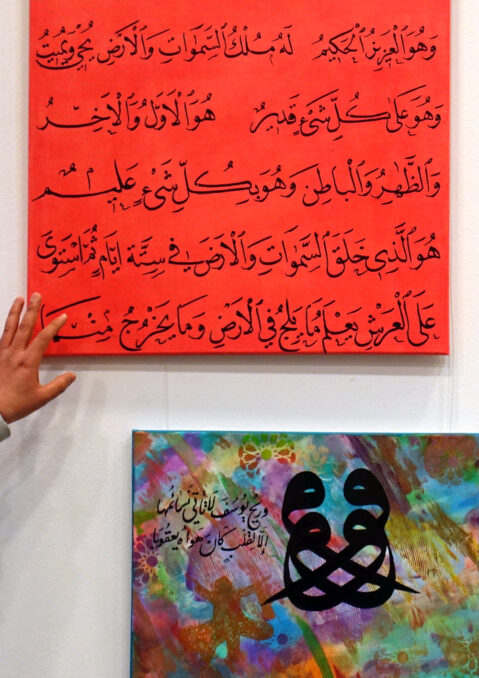 وَهُوَ الْعَزِيزُ الْحَكِيمُ لَهُ مُلْكُ السَّمٰوَاتِ وَالْاَرْضِ يُحْيِي وَيُمِيتُ
وَهُوَ عَلٰى كُلِّ شَيْءٍ قَدِيرٌ هُوَ الْاَوَّلُ وَالْاٰخِرُ
وَالظَّاهِرُ وَالْبَاطِنُ وَهُوَ بِكُلِّ شَيْءٍ عَلِيمٌ
هُوَ الَّذِي خَلَقَ السَّمٰوَاتِ وَالْاَرْضَ فِي سِتَّةِ اَيَّامٍ ثُمَّ اسْتَوٰى
عَلَى الْعَرْشِ يَعْلَمُ مَا يَلِجُ فِي الْاَرْضِ وَمَا يَخْرُجُ مِنْهَا
وريح يوسف لا تأتي نسائمها
إلا لقلب كان هواه يعقوبا